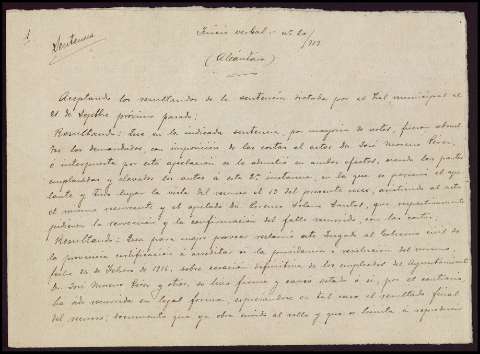 Sentencia
Juicio verbal - nº 20/
(Alcántara)
Aceptando los resultandos de la sentencia dictada por el Tral municipal el
21 de Septbre próximo pasado;
Resultando: Que en la indicada sentencia, por mayoria de votos, fueron absuel
tos los demandados con imposicion de las costas al actor Dn José Moreno
é interpuesta por este apelacion se le admitió en ambos efectos, siendo las partes
emplazadas y elevados los autos á esta 2ª instancia, en la que se personó el ape
lante y tuvo lugar la vista del recurso el 12 del presente mes, asistiendo al acto
el mismo recurrente y el apelado Dn Solano que respectivamente
pidieron la revocacion y la confirmacion del fallo recurrido, con las costas.
Resultando: Que para mejor proveer reclamó este Juzgado al Gobierno civil de
la provincia certificacion á acreditar si la providencia ó resolucion del mismo,
fecha 22 de Febrero de 1916, sobre cesacion definitiva de los empleados del Ayuntamiento
Dn José Moreno y otros, se hizo firme y causó estado ó si, por el contrario,
ha sido recurrida en legal forma, expresandose en tal caso el resultado final
del recurso; documento que ya obra unido al rollo y que se limita á reproducir